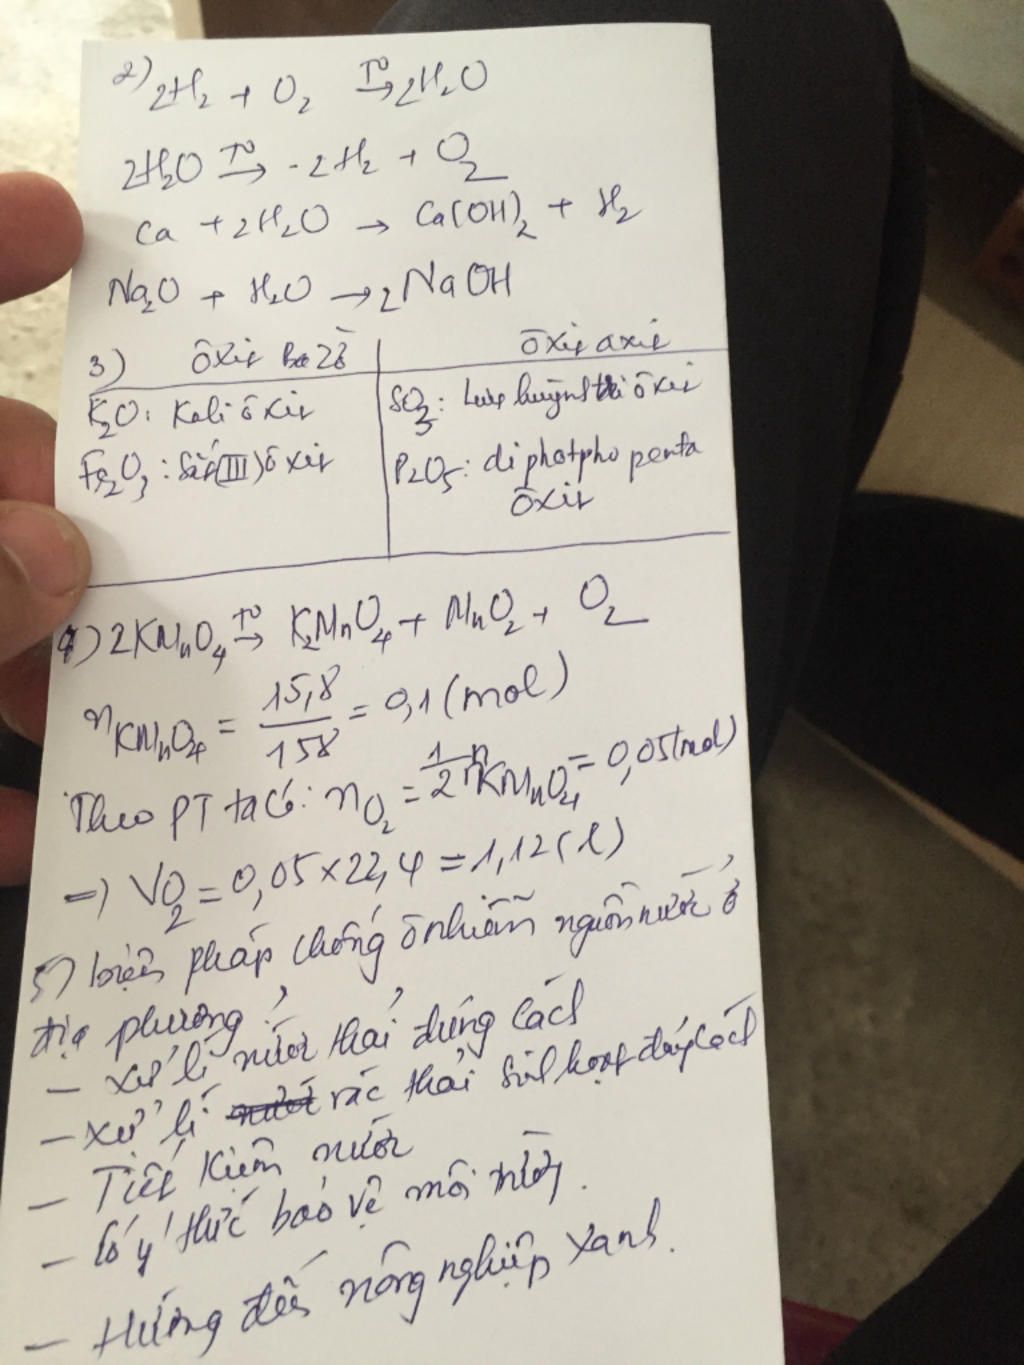 2) 2H₂ + O₂ →(T⁰) 2H₂O
2H₂O →(T⁰) 2H₂ + O₂
Ca + 2H₂O → Ca(OH)₂ + H₂
Na₂O + H₂O → 2NaOH
3) Ôxit Bazơ | Ôxit axit
K₂O: Kali ôxit | SO₃: Lưu huỳnh tri ôxit
Fe₂O₃: Sắt(III) ôxit | P₂O₅: di photpho penta
ôxit
4) 2KMnO₄ →(T⁰) K₂MnO₄ + MnO₂ + O₂
n KMnO₄ = 15,8/158 = 0,1 (mol)
Theo PT ta có: n O₂ = 1/2 n KMnO₄ = 0,05 (mol)
=) VO₂ = 0,05 × 22,4 = 1,12 (l)
5) biện pháp chống ô nhiễm nguồn nước ở
địa phương:
- xử lí nước thải đúng cách
- xử lí rác thải sinh hoạt đúng cách
- Tiết kiệm nước
- Có ý thức bảo vệ môi trường.
- Hướng đến nông nghiệp xanh.